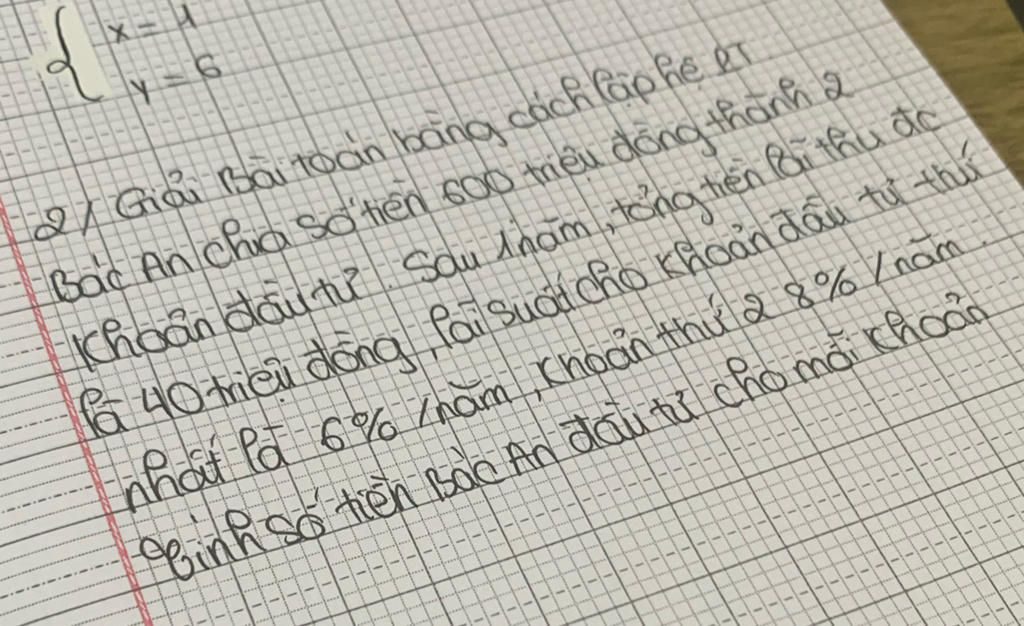 { x = 1
y = 6
2/ Giải Bài toán bằng cách lập hệ PT
Bác An chia số tiền 600 triệu đồng thành 2
khoản đầu tư. Sau 1 năm, tổng tiền lãi thu đc
là 40 triệu đồng, lãi suất cho khoản đầu tư thứ
nhất là 6% /năm, khoản thứ 2 8% /năm.
Tính số tiền Bác An đầu tư cho mỗi khoản